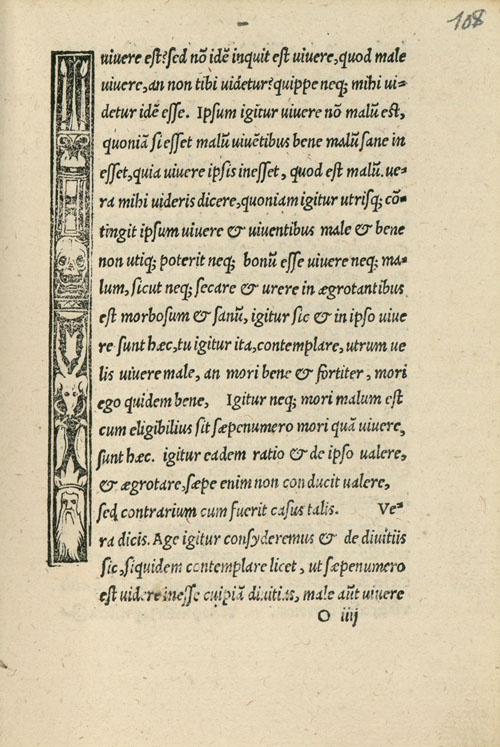 108
uiuere est? sed nõ idẽ inquit est uiuere, quod male
uiuere, an non tibi uidetur? quippe neq; mihi ui-
detur idẽ esse. Ipsum igitur uiuere nõ malũ est,
quoniã si esset malũ uiuẽtibus bene malũ sane in
esset, quia uiuere ipsis inesset, quod est malũ. ue-
ra mihi uideris dicere, quoniam igitur utrisq; cõ-
tingit ipsum uiuere & uiuentibus male & bene
non utiq; poterit neq; bonũ esse uiuere neq; ma-
lum, sicut neq; secare & urere in ægrotantibus
est morbosum & sanũ, igitur sic & in ipso uiue
re sunt hæc, tu igitur ita, contemplare, utrum ue
lis uiuere male, an mori bene & fortiter, mori
ego quidem bene, Igitur neq; mori malum est
cum eligibilius sit sæpenumero mori quã uiuere,
sunt hæc. igitur eadem ratio & de ipso ualere,
& ægrotare, sæpe enim non conducit ualere,
sed contrarium cum fuerit casus talis. Ve-
ra dicis. Age igitur consyderemus & de diuitiis
sic, siquidem contemplare licet, ut sæpenumero
est uidere inesse cuipiã diuitias, male aũt uiuere
O iiij